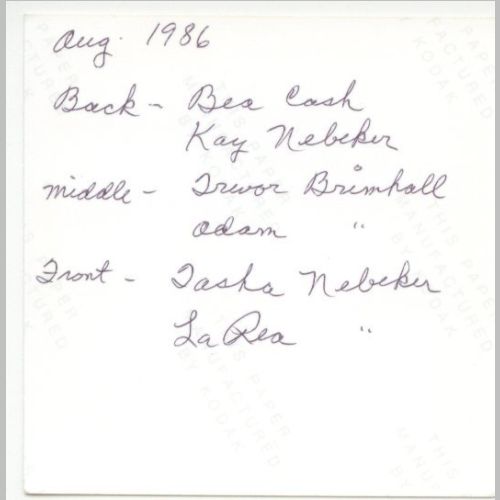 Aug. 1986
Back - Bea Cash
Kay Nebeker
middle - Trevor Brimhall
Adam "
Front - Tasha Nebeker
LaRea "
THIS PAPER
MANUFACTURED
BY KODAK